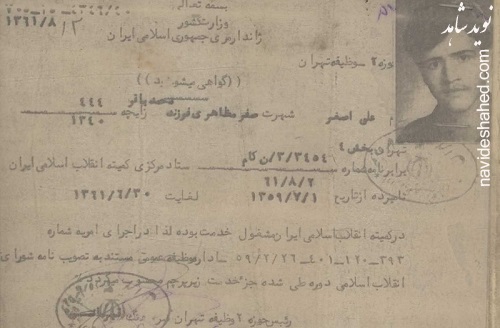 بسمه تعالی
۱۳۶۱/۸/۱۲
وزارت کشور
ژاندارمری جمهوری اسلامی ایران
حوزه ۲ وظیفه تهران
((گواهی میشود))
محمد باقر ۴۴۴
علی اصغر شهرت صفر مظاهری فرزند زایچه ۱۳۴۰
تهران بخش ۴
برابر نامه شماره ۳/۳۴۵۴/ن کام ستاد مرکزی کمیته انقلاب اسلامی ایران
۶۱/۸/۲
نامبرده از تاریخ ۱۳۵۹/۷/۱ لغایت ۱۳۶۱/۶/۳۰
در کمیته انقلاب اسلامی ایران مشغول خدمت بوده لذا در اجرای امریه شماره
۲۹۳-۱۲۰-۴۰۱-۵۹/۲/۲۶ اداره وظیفه عمومی مستند به تصویب نامه شورای
انقلاب اسلامی دوره طی شده جزء خدمت زیر پرچم محسوب میگردد
رئیس حوزه ۲ وظیفه تهران
نوید شاهد
navideshahed.com